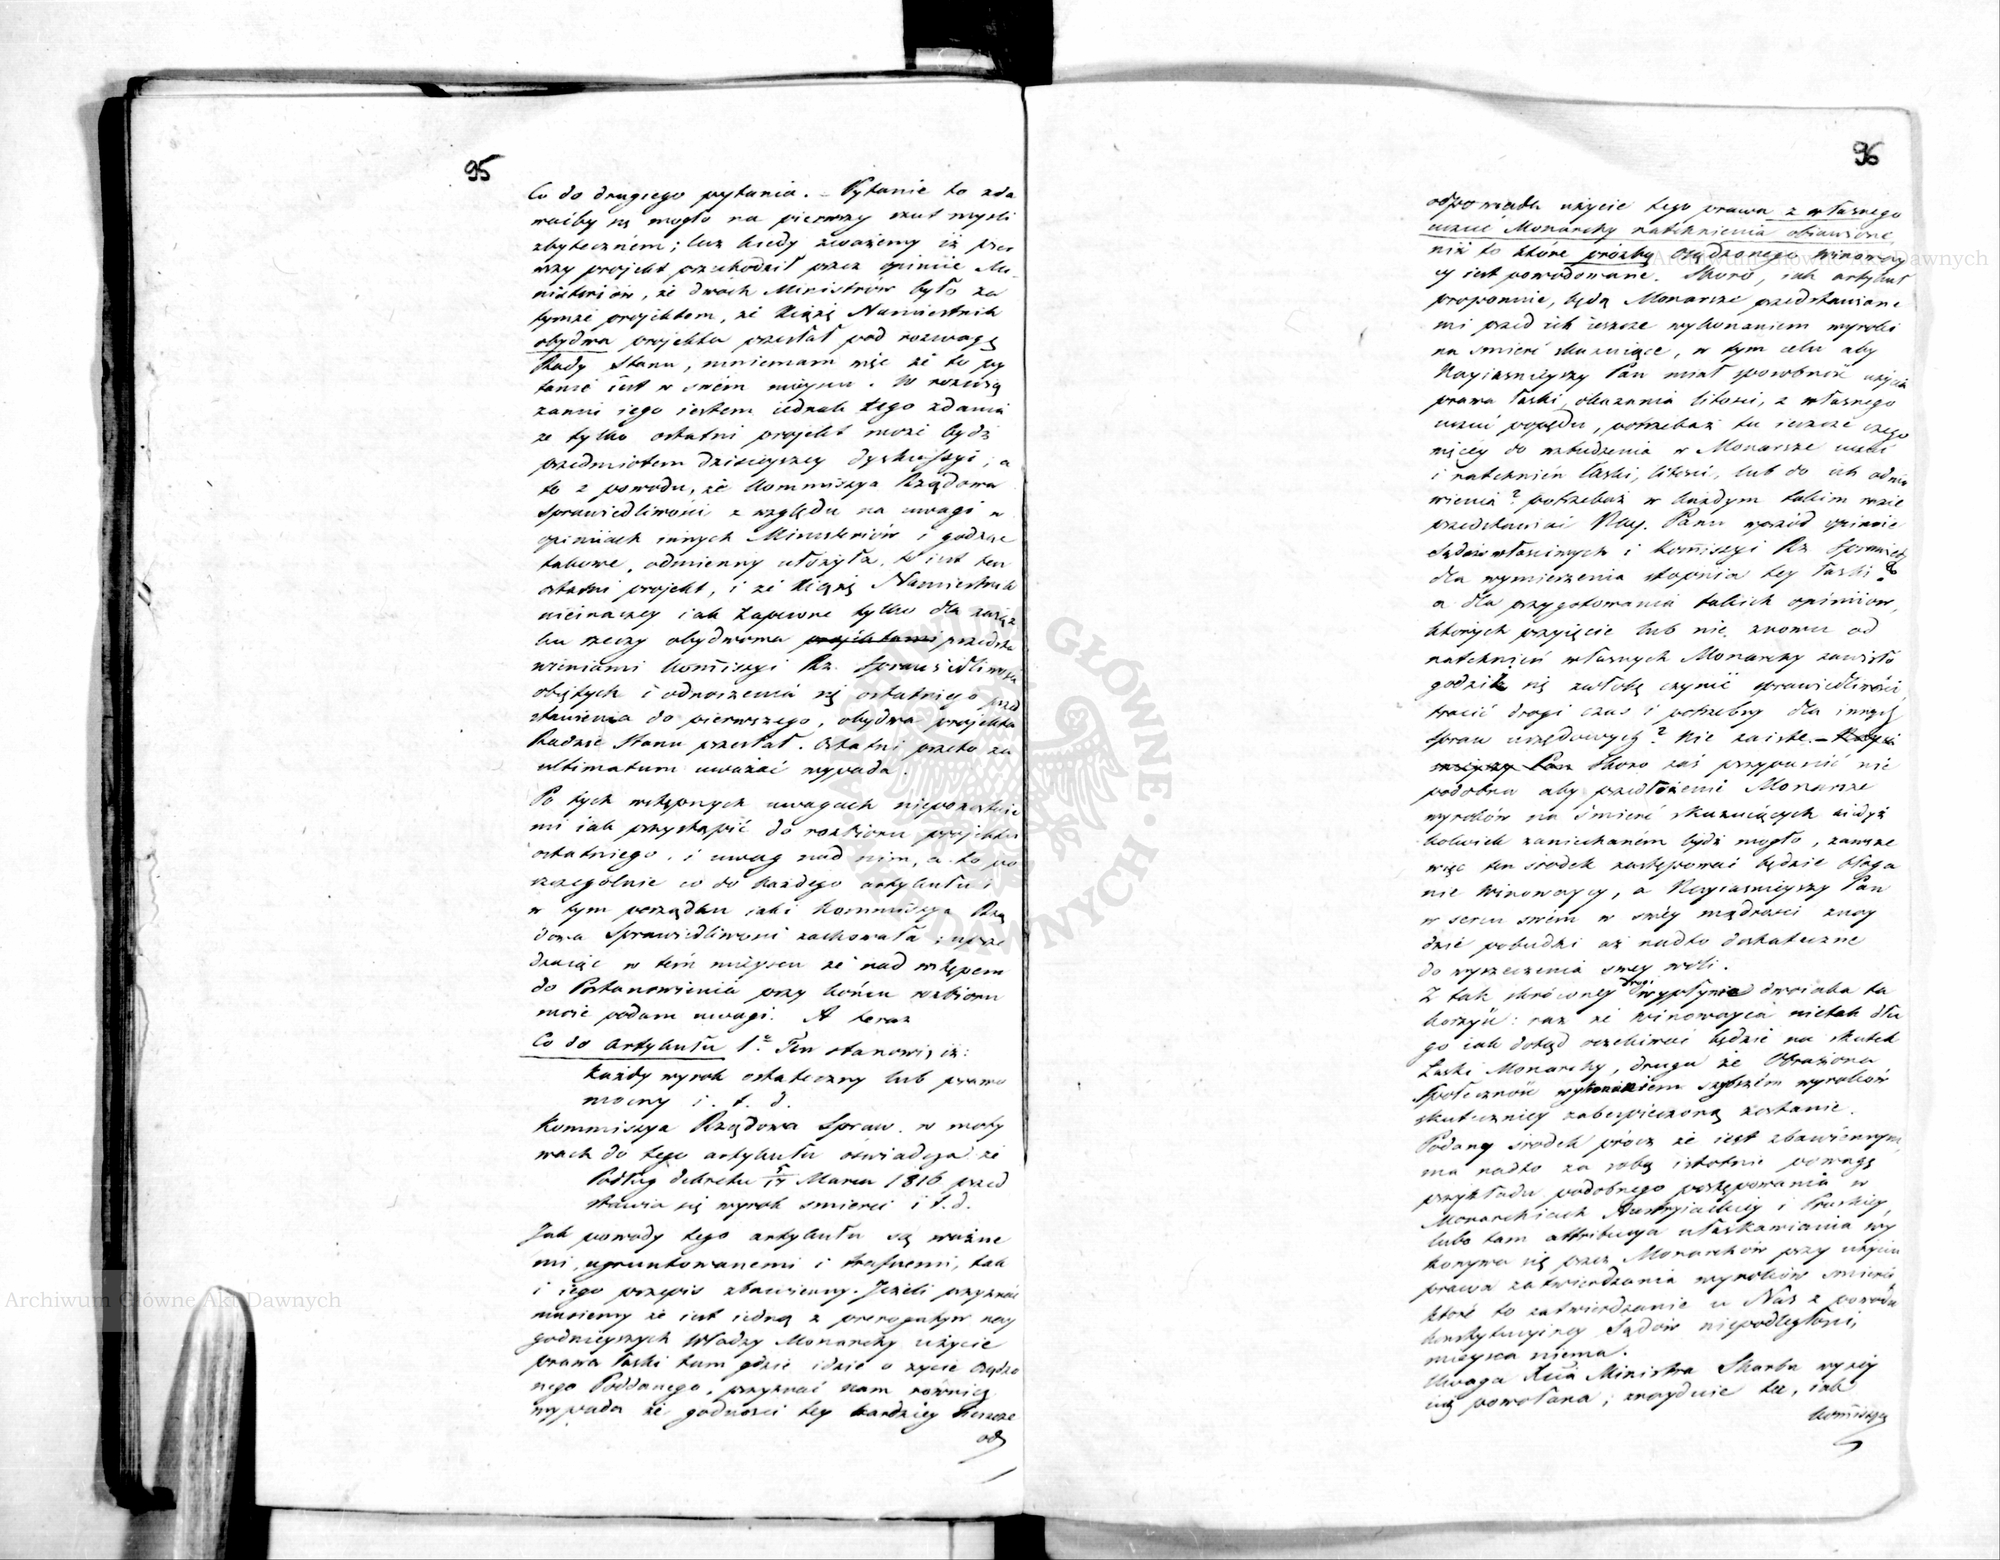 95
Co do drugiego pytania. – Pytanie to zda
wałby się mogło na pierwszy rzut myśli
zbytecznem; lecz kiedy zważemy iż pier
wszy projekt przechodził przez opiniie Mi-
nisteriów, że dwóch Ministrów było za
tymże projektem, że Xiążę Namiestnik
obydwa projekta przesłał pod rozwagę
Rady Stanu, mniemam więc że to py
tanie iest w swém mieyscu. W rozwią
zaniu iego iestem iednak tego zdania
że tylko ostatni projekt może bydź
przedmiotem dzisieyszey dyskussyi; a
to z powodu, że Kommissya Rządowa
Sprawiedliwości z względu na uwagi w
opiniiach innych Ministeriów i godząc
takowe, odmienny ułożyła, to iest ten
ostatni projekt, i że Xiążę Namiestnik
nieinaczey iak zapewne tylko dla związ
ku rzeczy obydwoma projektami przedsta
wieniami Kommissyi Rz. Sprawiedliwości
obiętych i odnoszenia się ostatniego przed
stawienia do pierwszego, obydwa projekta
Radzie Stanu przesłał. Ostatni przeto za
ultimatum uważać wypada.
Po tych wstępnych uwagach niepozostaie
mi iak przystąpić do rozbioru projektu
ostatniego, i uwag nad nim, a to po
szczególnie co do każdego artykułu i
w tym porządku iaki Kommissya Rzą
dowa Sprawiedliwości zachowała; uprze
dzaiąc w tém mieyscu że nad wstępem
do Postanowienia przy końcu rozbioru
moie podam uwagi. A teraz
Co do Artykułu 1.º Ten stanowi iż:
każdy wyrok ostateczny lub prawo
mocny i. t. d.
Kommissya Rządowa Spraw. w moty
wach do tego artykułu oświadcza że
Podług dekretu 5/17 Marca 1816 przed
stawia się wyrok śmierci i t. d.
Jak powody tego artykułu są ważne
mi, ugruntowanemi i trafnemi, tak
i iego przepis zbawienny. Jeżeli przyznać
musiemy że iest iedną z prerogatyw nay
godnieyszych Władzy Monarchy użycie
prawa łaski tam gdzie idzie o życie osądzo
nego Poddanego, przyznać nam równieź
wypada że godności tey bardziey ieszcze
od
96
odpowiada użycie tego prawa z własnego
uczuć Monarchy natchnienia obiawione,
niż to które prośbą osądzonego winoway
cy iest powodowane. Skoro, iak artykuł
proponuie, będą Monarsze przedstawiane
mi przed ich ieszcze wykonaniem wyroki
na śmierć skazuiące, w tym celu aby
Nayiaśnieyszy Pan miał sposobność użycia
prawa łaski, okazania litości, z własnego
uczuć popędu, potrzebaż tu ieszcze czego
więcey do wzbudzenia w Monarsze uczuć
i natchnień łaski, litości, lub do ich odmó
wienia? potrzebaż w każdym takim razie
przedstawiać Nay. Panu wprzód opinnie
Sądów właściwych i Kom̃issyi Rz. Sprawiedl.
dla wymierzenia stopnia tey łaski?
a dla przygotowania takich opiniiow,
których przyięcie lub nie, znowu od
natchnień własnych Monarchy zawisło
godziż się zwłokę czynić sprawiedliwości,
tracić drogi czas i potrzebny dla innych
spraw urzędowych? Nie zaiste. – Nayia
śnieyszy Pan Skoro zaś przypuścić nie
podobna aby przedłożenie Monarsze
wyroków na śmierć skazuiących kiedyż
kolwiek zaniechaném bydź mogło, zawsze
więc ten środek zastępować będzie błaga
nie winowaycy, a Nayiaśnieyszy Pan
w sercu swém w swéy mądrości znay
dzie pobudki aż nadto dostateczne
do wyrzeczenia swey woli.
Z tak skróconey drogi wypłynie dwoiaka ta
korzyść: raz że winowayca nietak dłu
go iak dotąd oczekiwać będzie na skutek
Łaski Monarchy, druga że Obrażona
Społeczność wykonaniem szybszém wyroków
skuteczniey zabezpieczoną zostanie.
Podany środek prócz że iest zbawiennym,
ma nadto za sobą istotnie powagę
przykładu podobnego postępowania w
Monarchiach Austryiackiey i Pruskiey,
lubo tam attribucya ułaskawiania wy
konywa się przez Monarchów przy użyciu
prawa zatwierdzania wyroków śmierci,
które to zatwierdzanie u Nas z powodu
konstytucyiney Sądów niepodległości,
mieysca niema.
Uwaga Xcia Ministra Skarbu wyżey
iuż powołana; znayduie tu, iak
Kom̃issya
Archiwum Główne Akt Dawnych
Archiwum Główne Akt Dawnych
ARCHIWUM GŁÓWNE AKT DAWNYCH